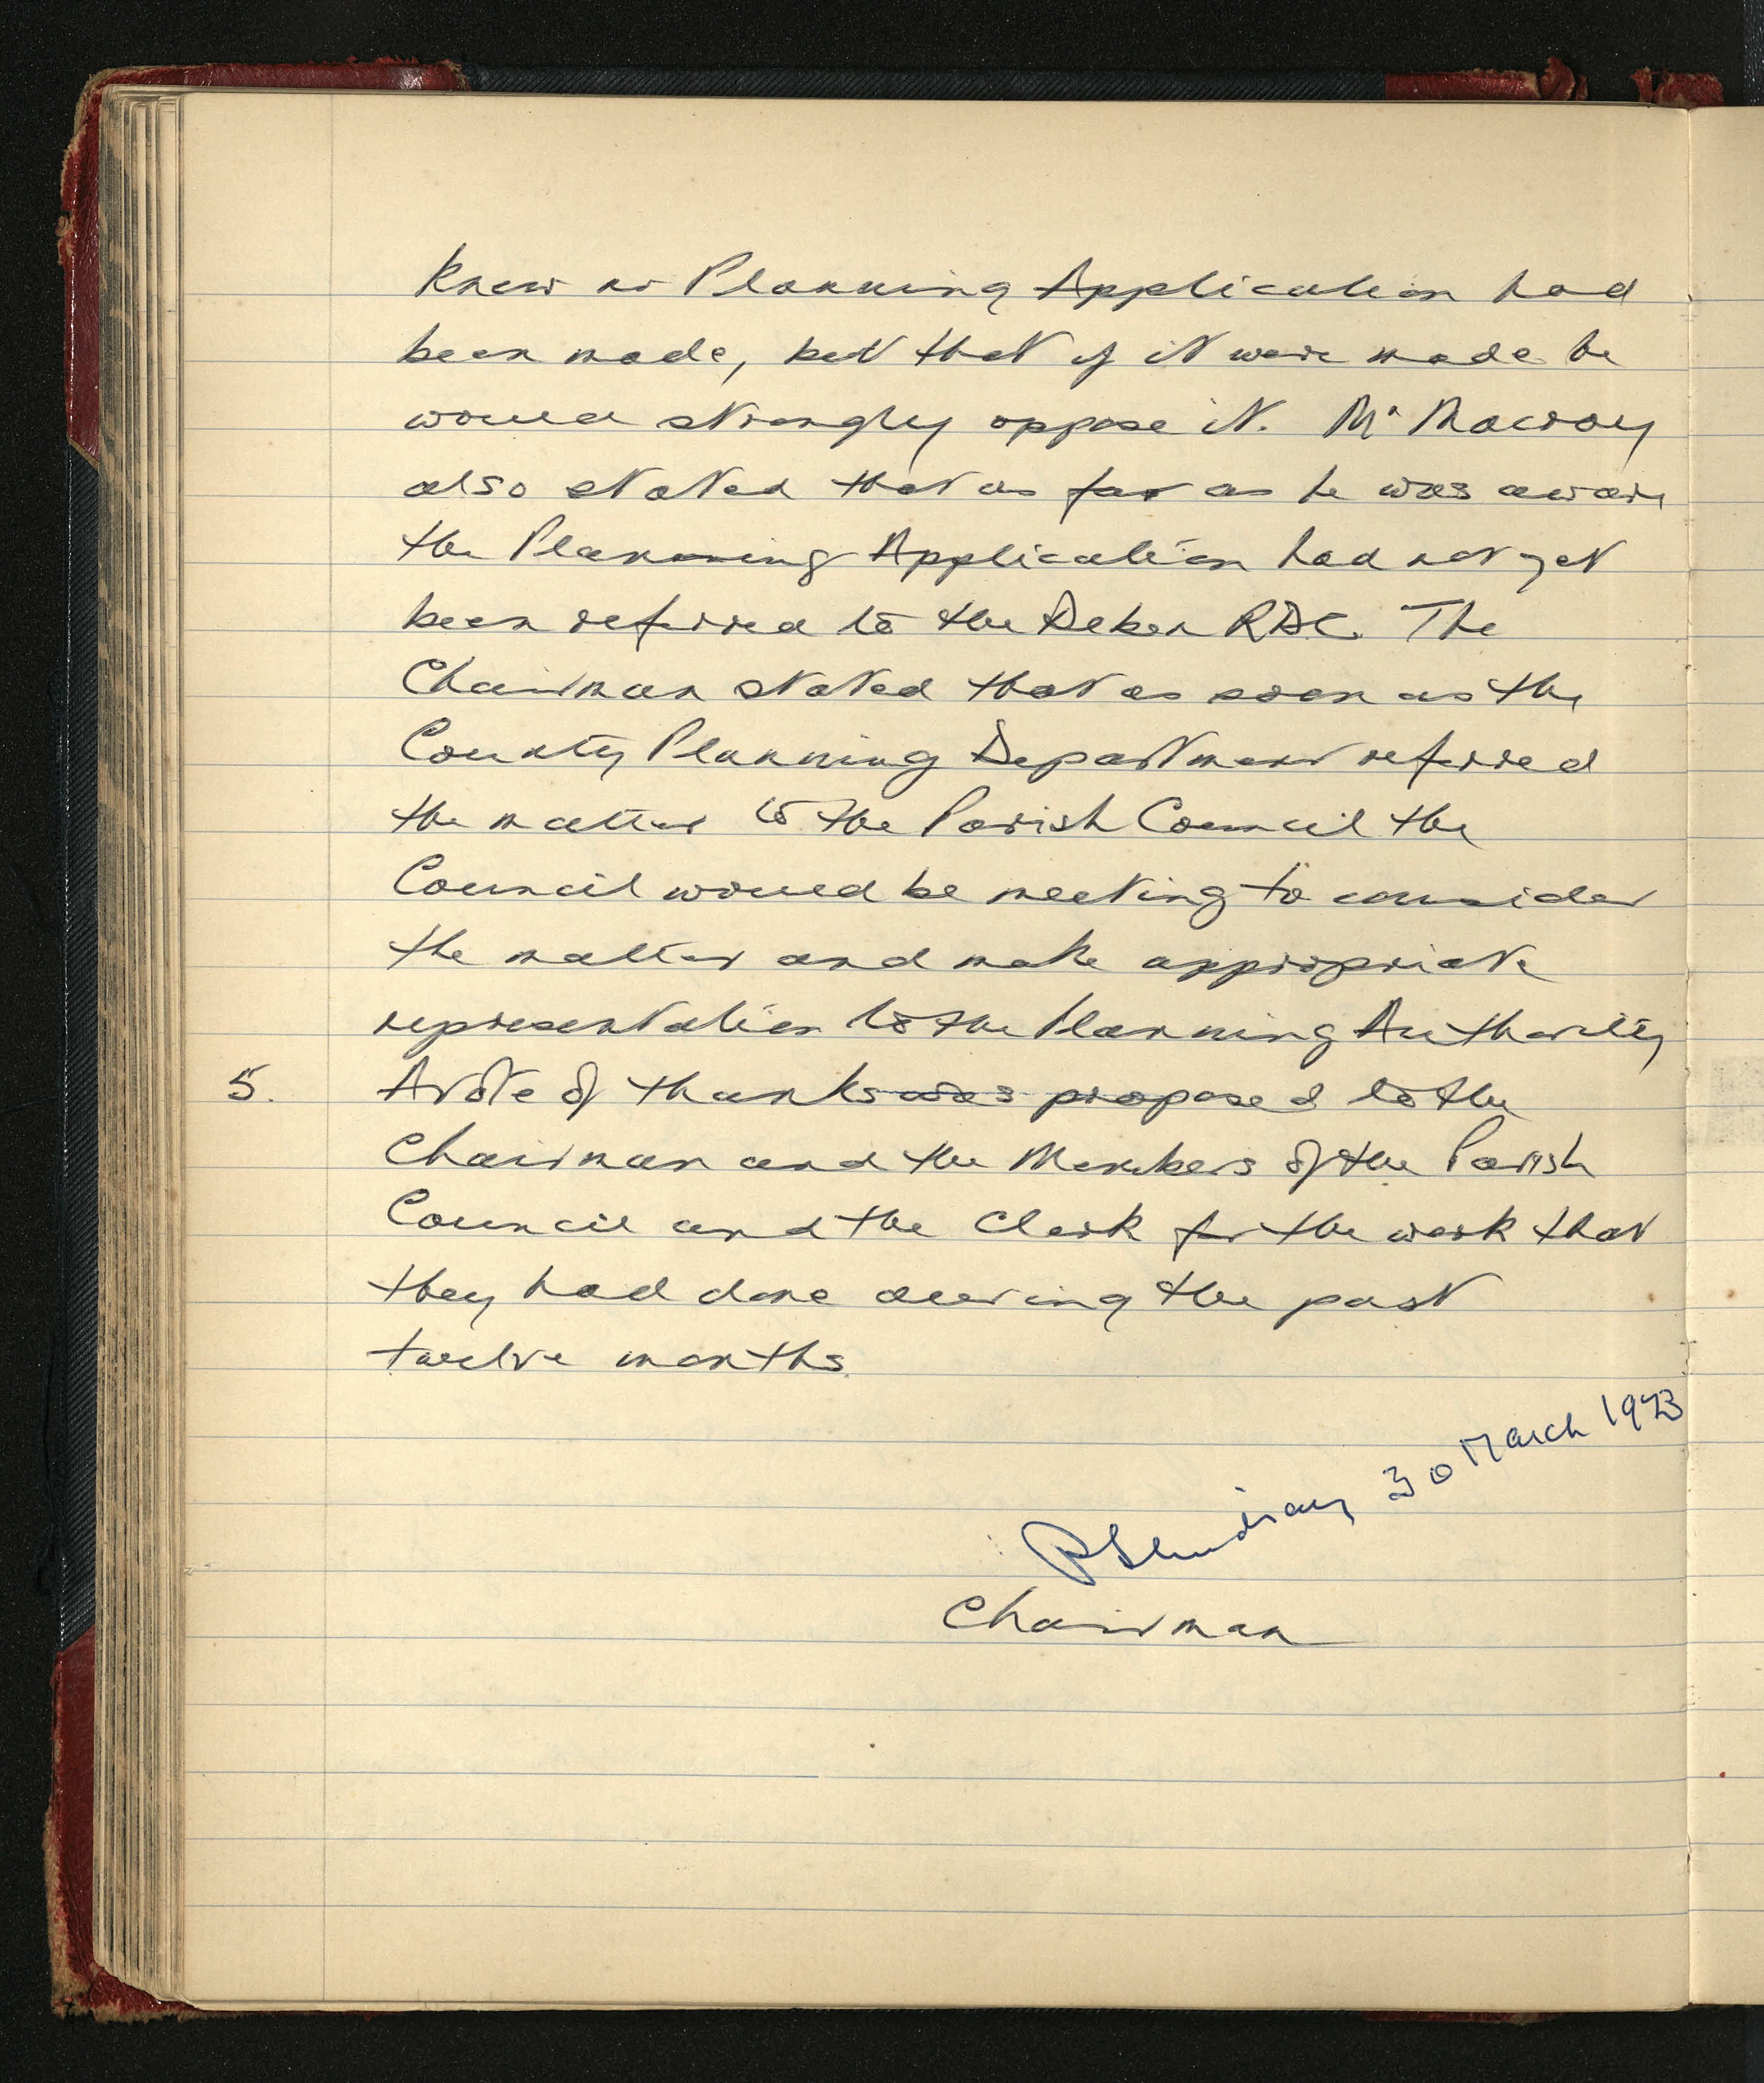 knew no Planning Application had
been made, but that if it were made he
would strongly oppose it. Mr Macroy
also stated that as far as he was aware
the Planning Application had not yet
been referred to the Deben RDC. The
Chairman stated that as soon as the
County Planning Department referred
the matter to the Parish Council the
Council would be meeting to consider
the matter and make appropriate
representation to the Planning Authority
5. A vote of thanks was proposed to the
Chairman and the Members of the Parish
Council and the Clerk for the work that
they had done during the past
twelve months.
30 March 1973
Chairman